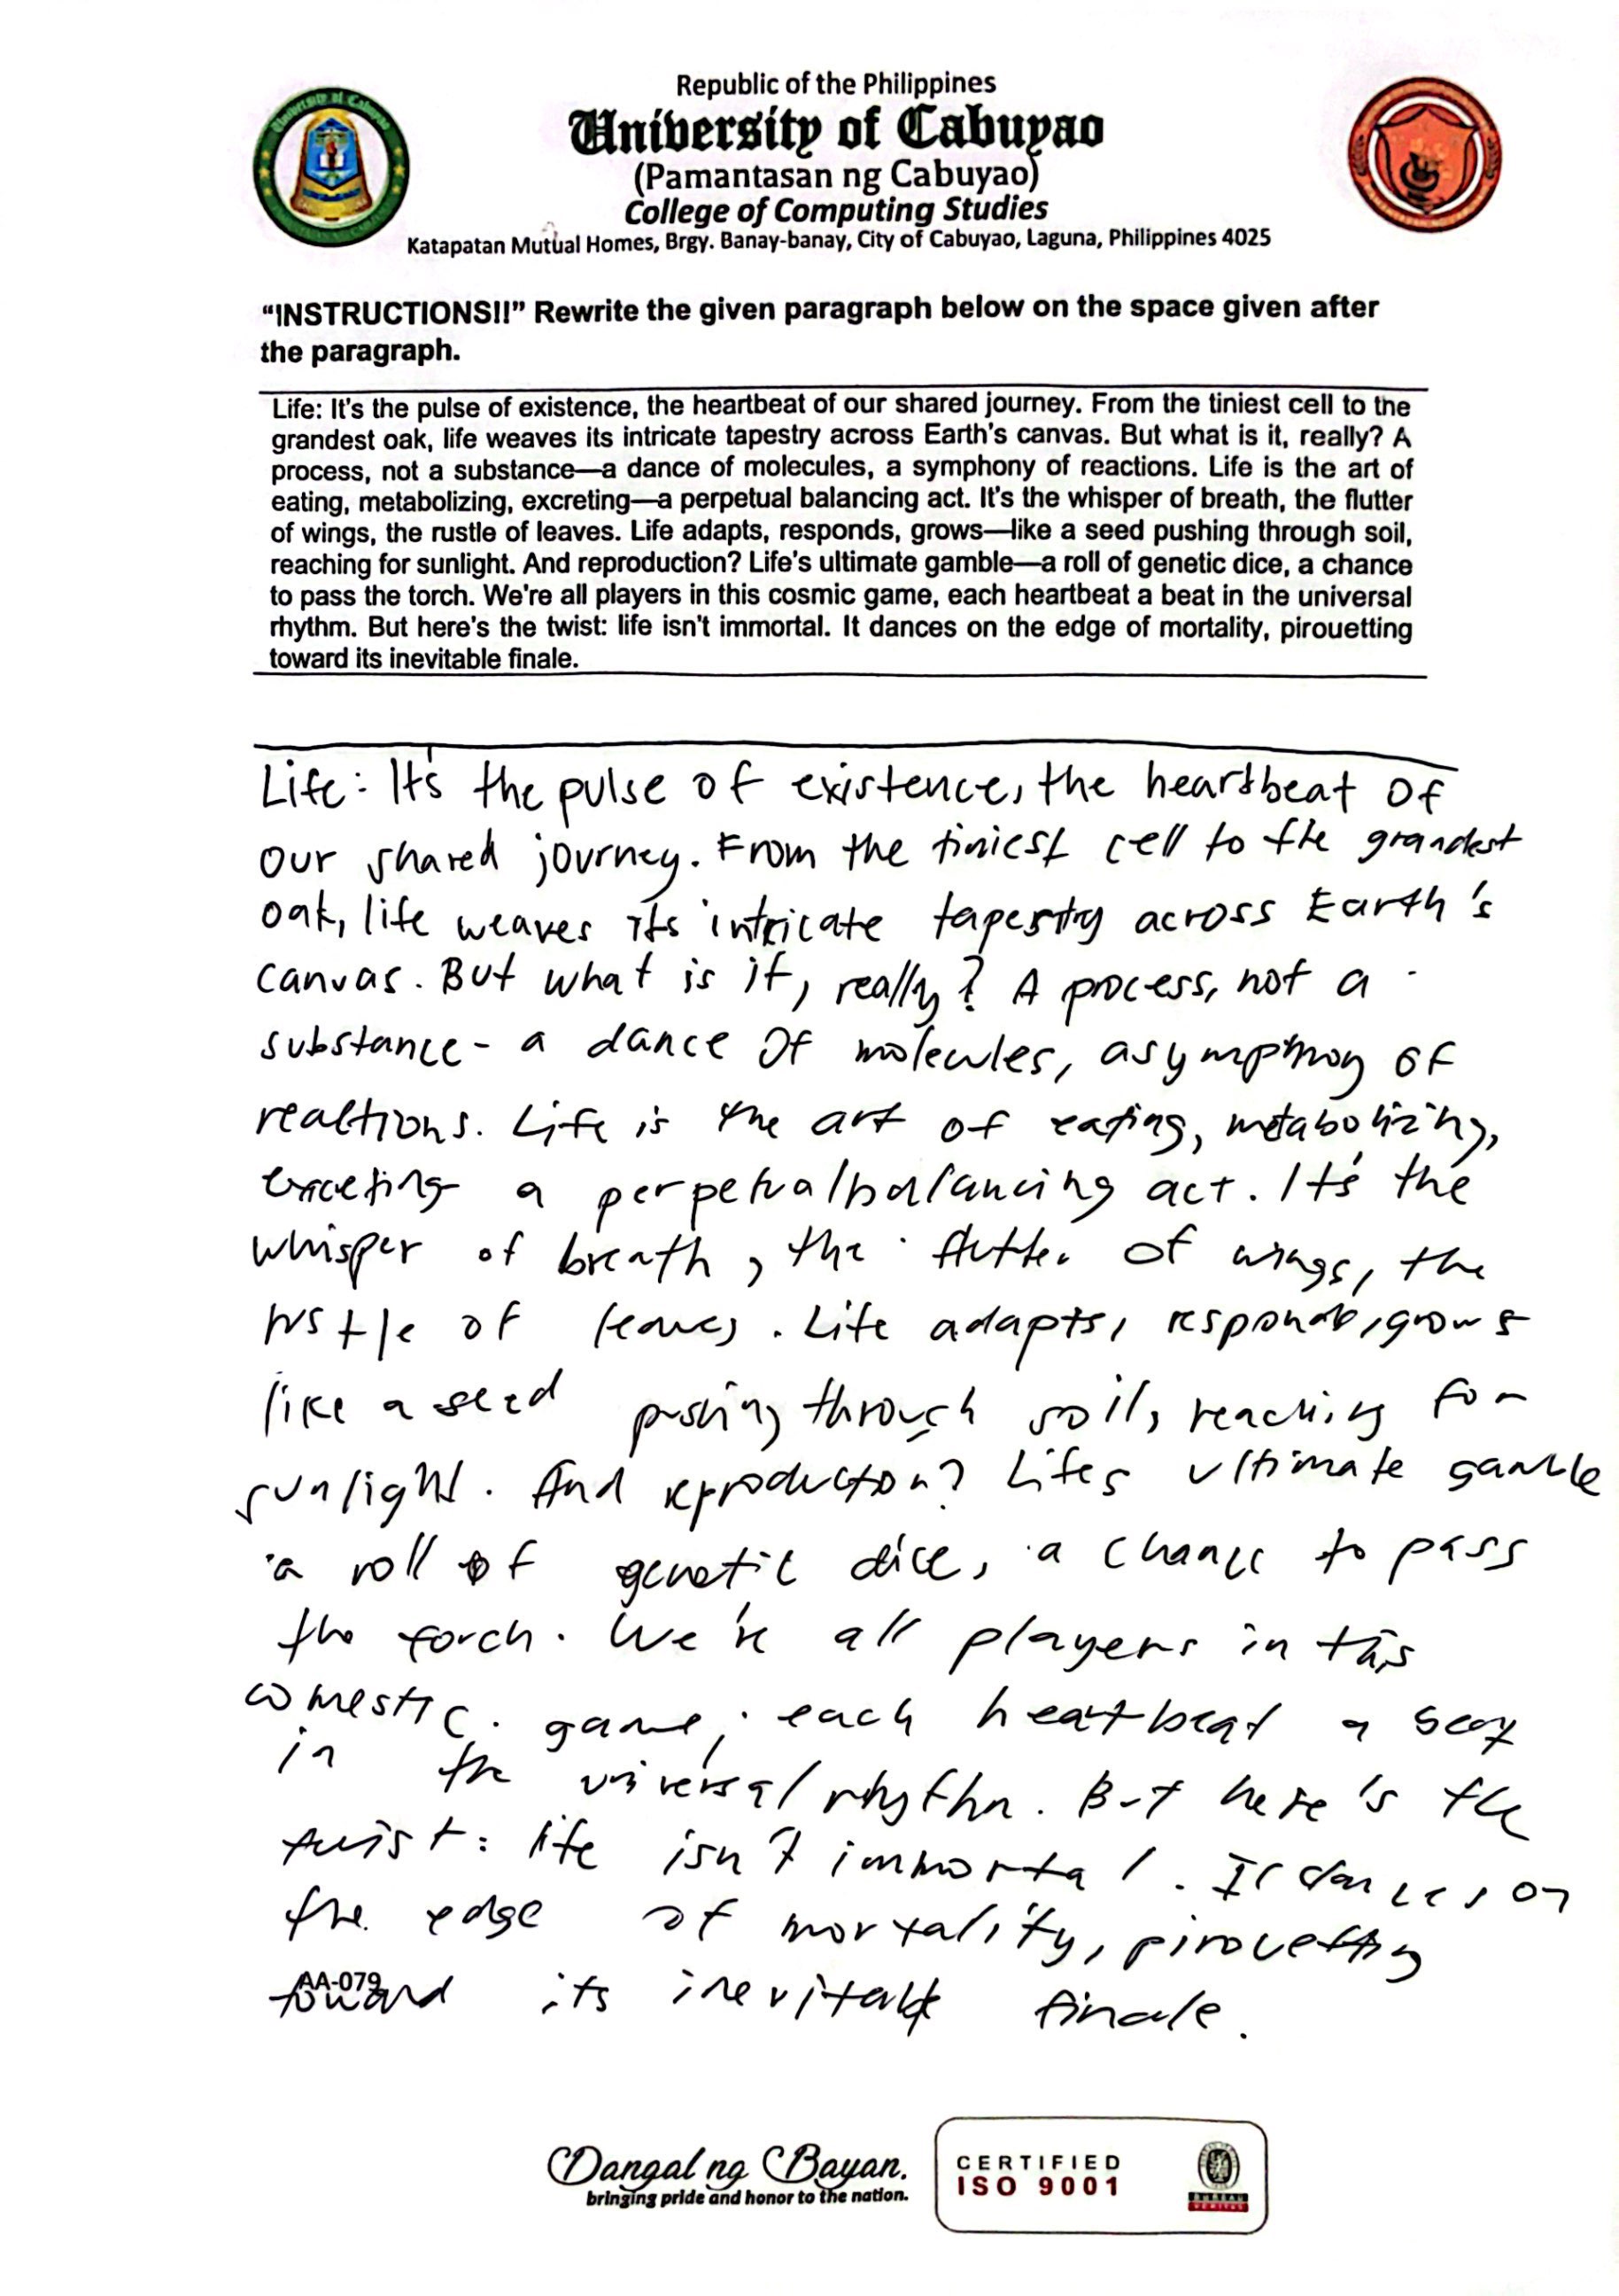 Republic of the Philippines
University of Cabuyao
(Pamantasan ng Cabuyao)
College of Computing Studies
Katapatan Mutual Homes, Brgy. Banay-banay, City of Cabuyao, Laguna, Philippines 4025
“INSTRUCTIONS!!” Rewrite the given paragraph below on the space given after
the paragraph.
Life: It's the pulse of existence, the heartbeat of our shared journey. From the tiniest cell to the
grandest oak, life weaves its intricate tapestry across Earth's canvas. But what is it, really? A
process, not a substance—a dance of molecules, a symphony of reactions. Life is the art of
eating, metabolizing, excreting—a perpetual balancing act. It's the whisper of breath, the flutter
of wings, the rustle of leaves. Life adapts, responds, grows—like a seed pushing through soil,
reaching for sunlight. And reproduction? Life's ultimate gamble—a roll of genetic dice, a chance
to pass the torch. We're all players in this cosmic game, each heartbeat a beat in the universal
rhythm. But here's the twist: life isn't immortal. It dances on the edge of mortality, pirouetting
toward its inevitable finale.
Life: It's the pulse of existence, the heartbeat of
our shared journey. From the tiniest cell to the grandest
oak, life weaves its intricate tapestry across Earth's
canvas. But what is it, really? A process, not a
substance - a dance of molecules, a of
reactions. Life is the art of eating, metabolizing,
a perpetual balancing act. It's the
whisper of breath, the flutter of wings, the
rustle of leaves. Life adapts, responds, grows
like a seed pushing through soil, reaching for
sunlight. And reproduction? Lifes ultimate gamble
a roll of genetic dice, a chance to pass
the torch. We're all players in this
game, each heartbeat a beat
in the universal rhythm. But here's the
twist: life isn't immortal. It dances on
the edge of mortality, pirouetting
AA-079
toward its inevitable finale.
Dangal ng Bayan.
bringing pride and honor to the nation.
CERTIFIED
ISO 9001
BUREAU
VERITAS